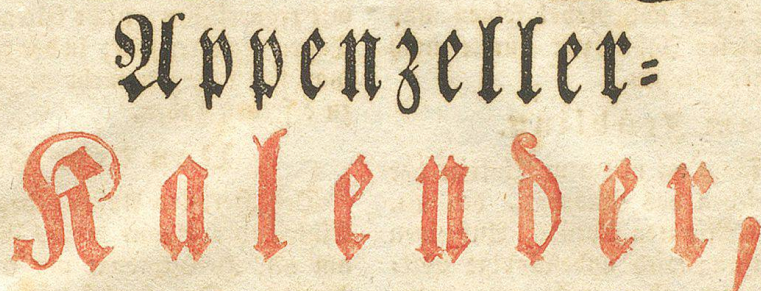 Appenzeller=
Kalender,